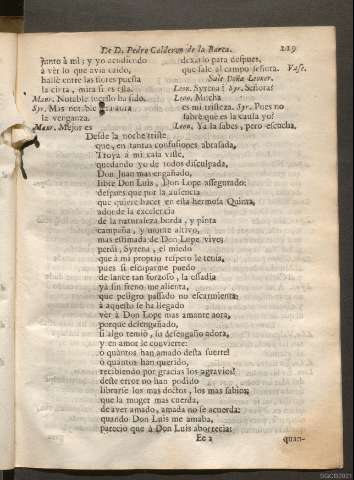 De D. Pedro Calderon de la Barca. 219
junto à mi; y yo acudiendo
à vèr lo que avia caido,
hallè entre las flores puesta
la cinta, mira si es esta.
Manr. Notable sucesso ha sido.
Syr. Mas notable serà aora
la venganza.
Manr. Mejor es
dexarlo para despues,
que sale al campo señora. Vase.
Sale Doña Leonor.
Leon. Syrena! Syr. Señora?
Leon. Mucha
es mi tristeza. Syr. Pues no
sabrè què es la causa yo?
Leon. Ya la sabes; pero escucha.
Desde la noche triste,
que, en tantas confusiones abrasada,
Troya à mi casa viste,
quedando yo de todos disculpada,
Don Juan mas engañado,
libre Don Luis, Don Lope assegurado:
despues que por la ausencia
que quiere hacer en esta hermosa Quinta,
ador de la excelencia
de la naturaleza borda, y pinta
campaña, y monte altivo,
mas estimada de Don Lope vivo;
perdì, Syrena, el miedo
que à mi proprio respeto le tenia,
pues si escaparme puedo
de lance tan forzoso, la osadia
yà sin freno me alienta,
que peligro passado no escarmienta:
à aquesto se ha llegado
vèr à Don Lope mas amante aora,
porque desengañado,
si algo temiò, su desengaño adora,
y en amor le convierte:
ò quàntos han amado desta suerte!
ò quàntos han querido,
recibiendo por gracias los agravios!
deste error no han podido
librarse los mas doctos, los mas sabios;
que la muger mas cuerda,
de aver amado, amada no se acuerda:
quando Don Luis me amaba,
pareciò que à Don Luis aborrecia:
Ee 2 quan-
SGCB2021